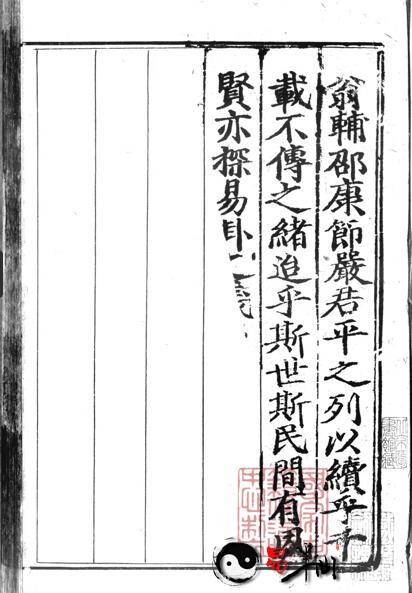 翁輔邵康節嚴君平之列以續乎千
載不傳之緒迨乎斯世斯民間有因
賢亦探易卦之義